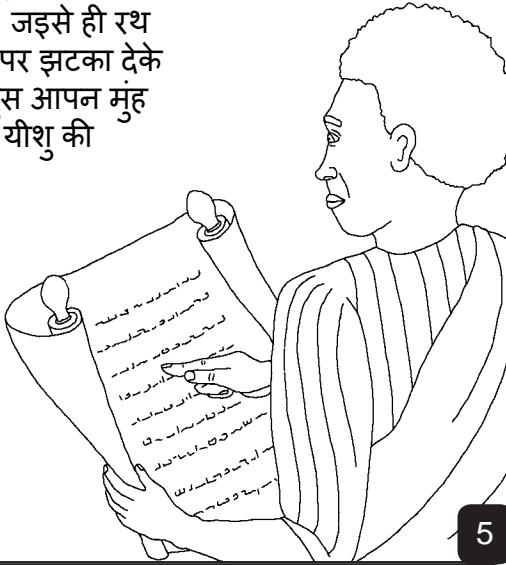 जइसे ही रथ
पर झटका देके
स आपन मुंह
यीशु की
5